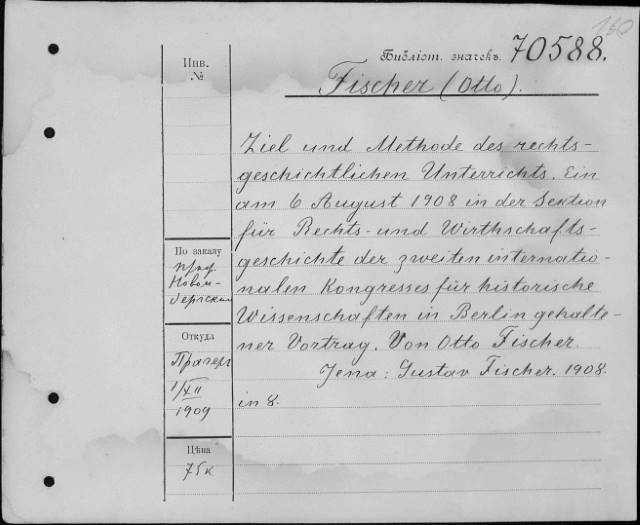 160
Библіот. значекъ. 70588.
Fischer (Otto).
Инв.
№
Ziel und Methode des rechts-
geschichtlichen Unterrichts. Ein
am 6 August 1908 in der Sektion
für Rechts- und Wirthschafts-
geschichte der zweiten internatio-
nalen Kongresses für historische
Wissenschaften in Berlin gehalte-
ner Vortrag. Von Otto Fischer.
Jena: Gustav Fischer. 1908.
in 8.
По заказу
проф
Новом-
бергскаго
Откуда
Прагеръ
1/XII
1909
Цѣна
75к